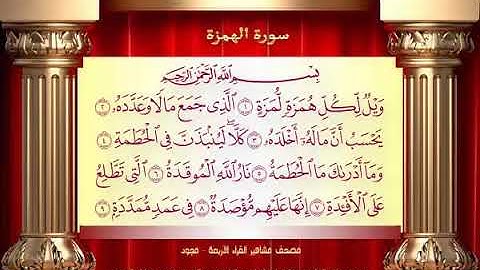 سورة الهمزة
بِسْمِ اللَّهِ الرَّحْمَٰنِ الرَّحِيمِ
وَيْلٌ لِّكُلِّ هُمَزَةٍ لُّمَزَةٍ ١ الَّذِى جَمَعَ مَالًا وَعَدَّدَهُۥ ٢
يَحْسَبُ أَنَّ مَالَهُۥٓ أَخْلَدَهُۥ ٣ كَلَّا ۖ لَيُنۢبَذَنَّ فِى الْحُطَمَةِ ٤
وَمَآ أَدْرَىٰكَ مَا الْحُطَمَةُ ٥ نَارُ اللَّهِ الْمُوقَدَةُ ٦ الَّتِى تَطَّلِعُ
عَلَى الْأَفْـِٔدَةِ ٧ إِنَّهَا عَلَيْهِم مُّؤْصَدَةٌ ٨ فِى عَمَدٍ مُّمَدَّدَةٍۭ ٩
مصحف مشاهير القراء الأربعة - مجود